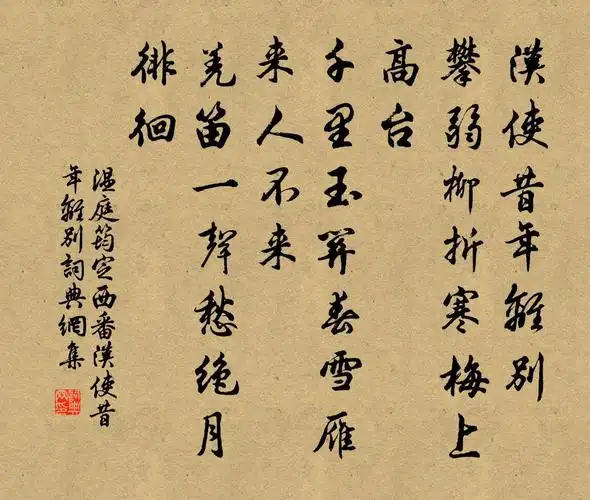 漢使昔年離別
攀弱柳折寒梅上
高台
千里玉關春雪雁
来人不来
羌笛一聲愁絶月
徘徊
温庭筠定西番漢使昔
年離別詞典網集